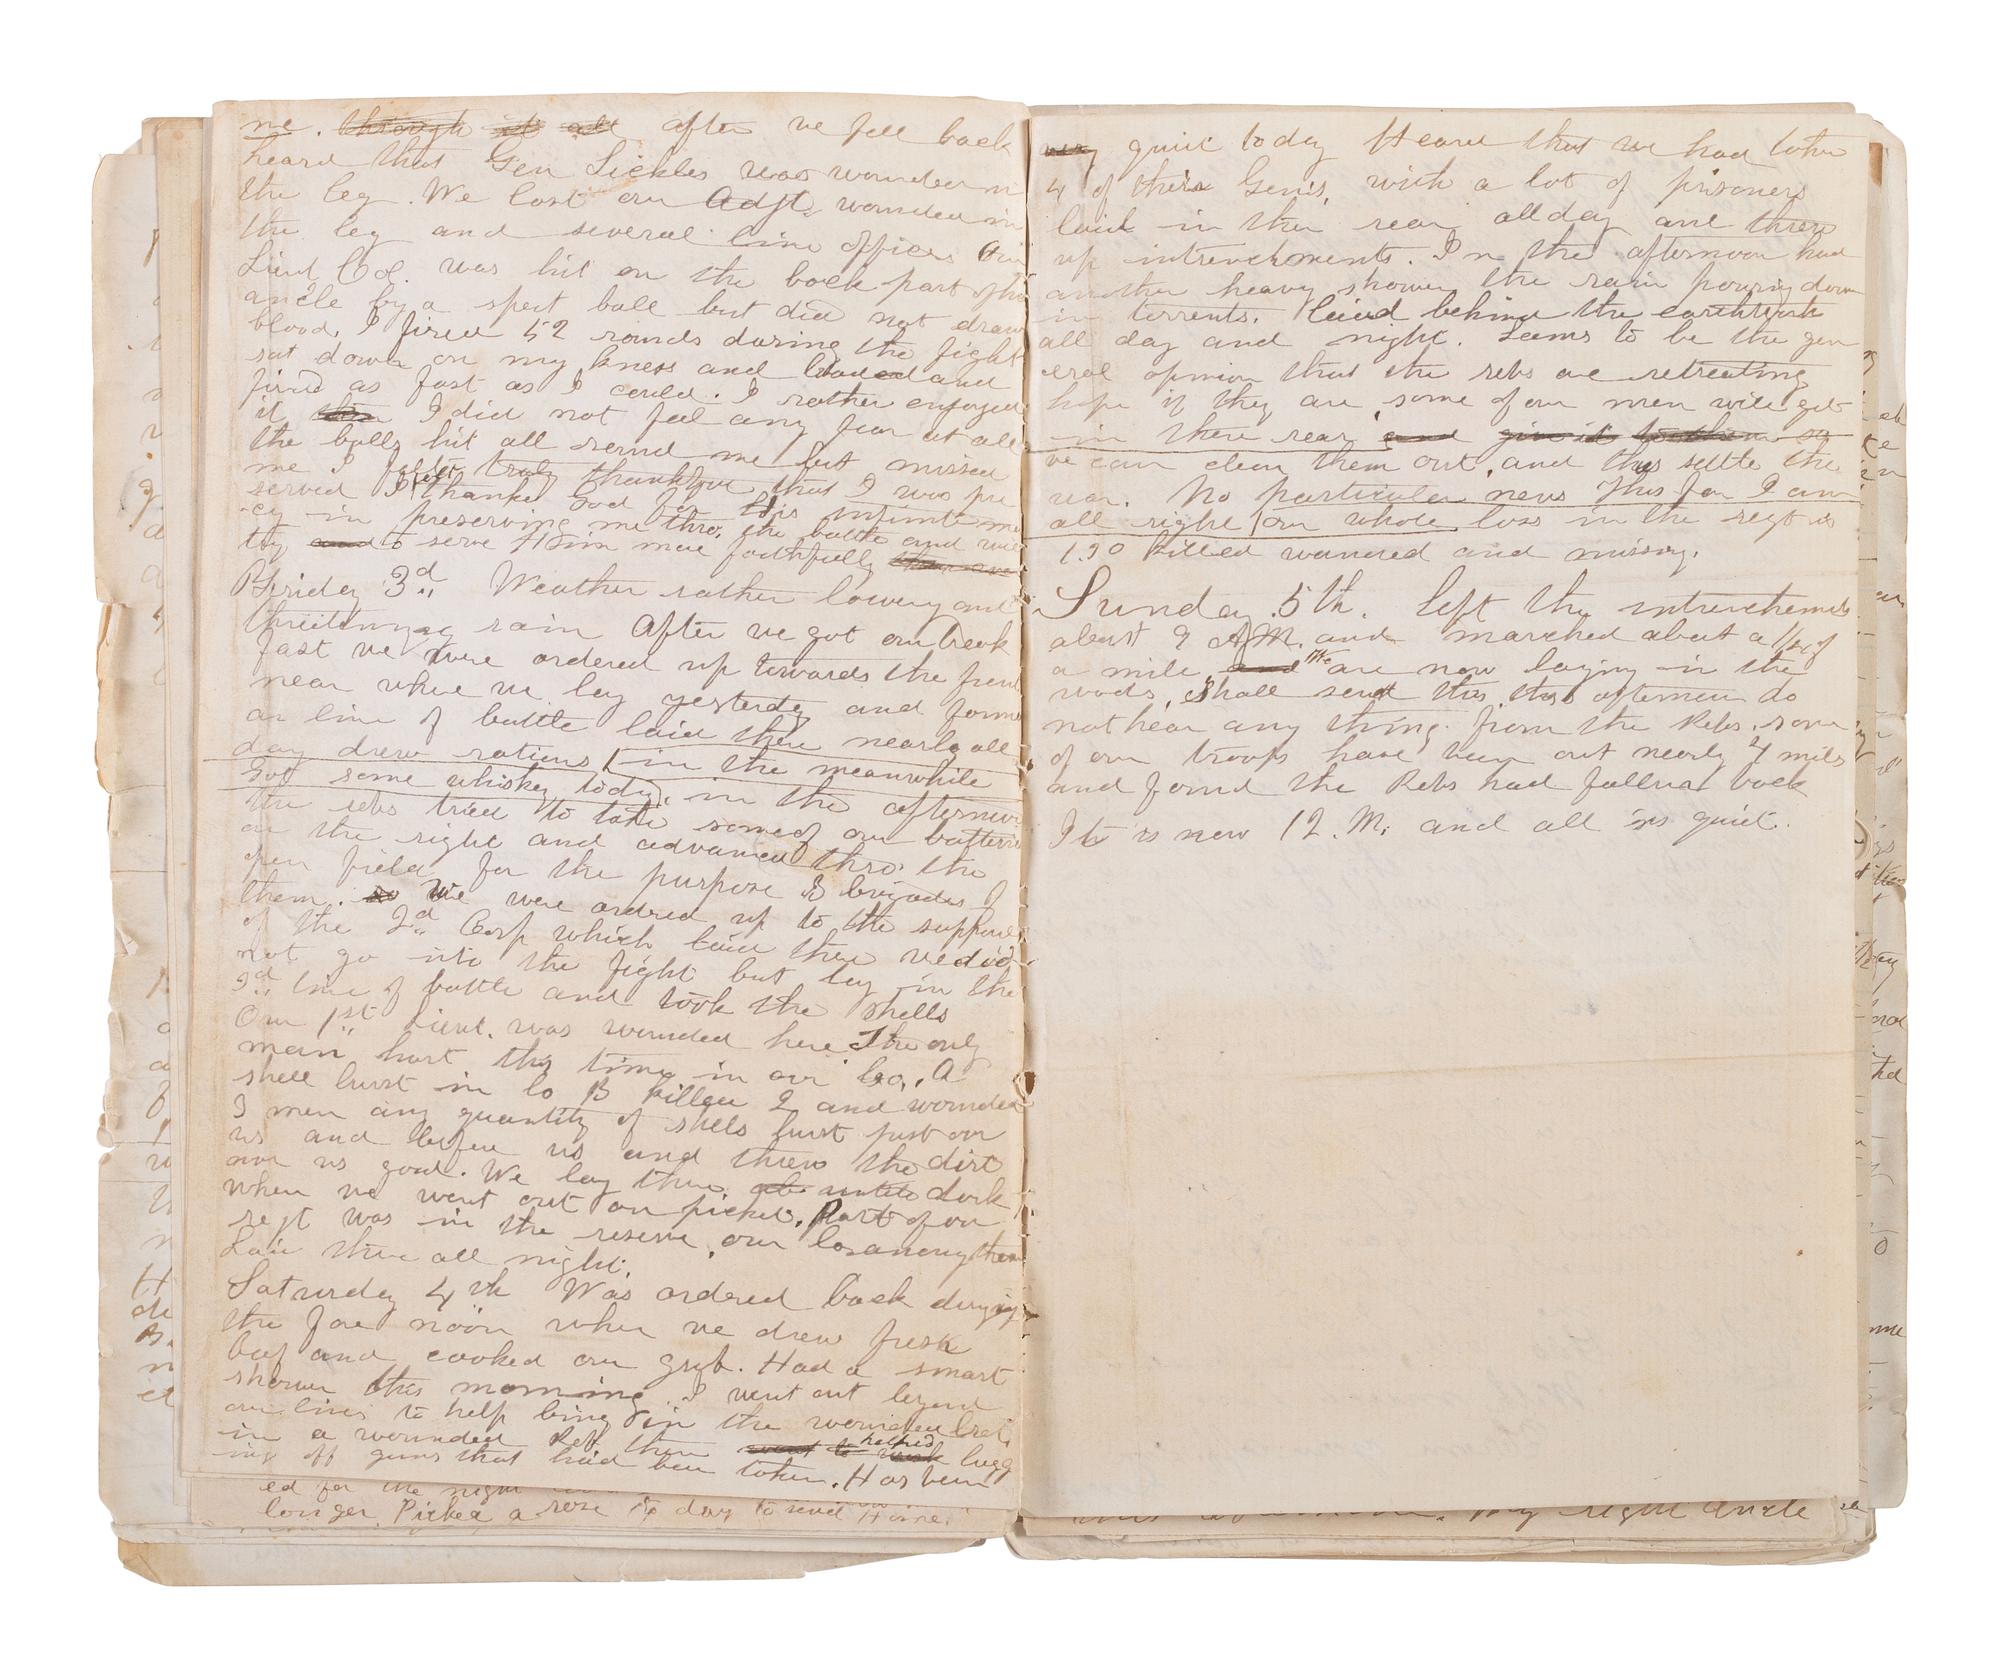 me. through it all after we fell back
heard that Gen Sickles was wounded in
the leg. We lost our Adjt. wounded in
the leg and several line officers Our
Lieut Col. was hit on the back part of his
ancle by a spent ball but did not draw
blood. I fired 52 rounds during the fight
sat down on my knees and loaded and
fired as fast as I could. I rather enjoyed
it I did not feel any fear at all
the balls hit all round me but missed
me I felt truly thankful that I was pre
served I thanked God for His infinite mer
cy in preserving me thro. the battle and will
try to serve Him more faithfully
Friday 3d. Weather rather lowery and
threitening rain After we got our break
fast we were ordered up towards the front
near where we lay yesterday and formed
a line of battle laid there nearly all
day drew rations in the meanwhile
Got some whiskey today. in the afternoon
the rebs tried to take some of our batteries
on the right and advanced thro. the
open field for the purpose 3 brigades of
them. so We were ordred up to the support
of the 2d. Corp which laid there we did
not go into the fight but lay in the
3d. line of battle and took the shells
Our 1st Lieut. was wounded here The only
man hurt this time in our Co. A
shell burst in Co B killed 2 and wounded
3 men any quantity of shells burst just over
us and before us and threw the dirt
over us good. We lay there until dark
when we went out on picket. Part of our
regt was in the reserve, our Co. among them
Laid there all night.
Saturday 4th Was ordered back during
the fore noon when we drew fresh
beef and cooked our grub. Had a smart
shower this morning. I went out beyond
our lines to help bring in the wounded bret.
in a wounded Reb. then went to helped work lugg
ing off guns that had been taken. Has been
ed for the night
longer. Picked a rose to day to send Home.
very quiet today Heard that we had taken
4 of their Gen's, with a lot of prisoners
laid in the rear all day and threw
up intrenchments. In the afternoon had
another heavy shower the rain pouring down
in torrents. laid behind the earthwork
all day and night. Seems to be the gen
eral opinion that the rebs are retreating
hope if they are, some of our men will get
in there rear and give it to them so
we can clean them out, and thus settle the
war. No particular news Thus far I am
all right our whole loss in the regt is
130 killed wounded and missing.
Sunday 5th. left the intrenchments
about 9 A.M. and marched about a 1/4 of
a mile and We are now laying in the
woods, Shall send this this afternoon do
not hear any thing from the Rebs. some
of our troops have been out nearly 4 miles
and found the Rebs had fallen back
It is now 12. M. and all is quiet.
My right ancle